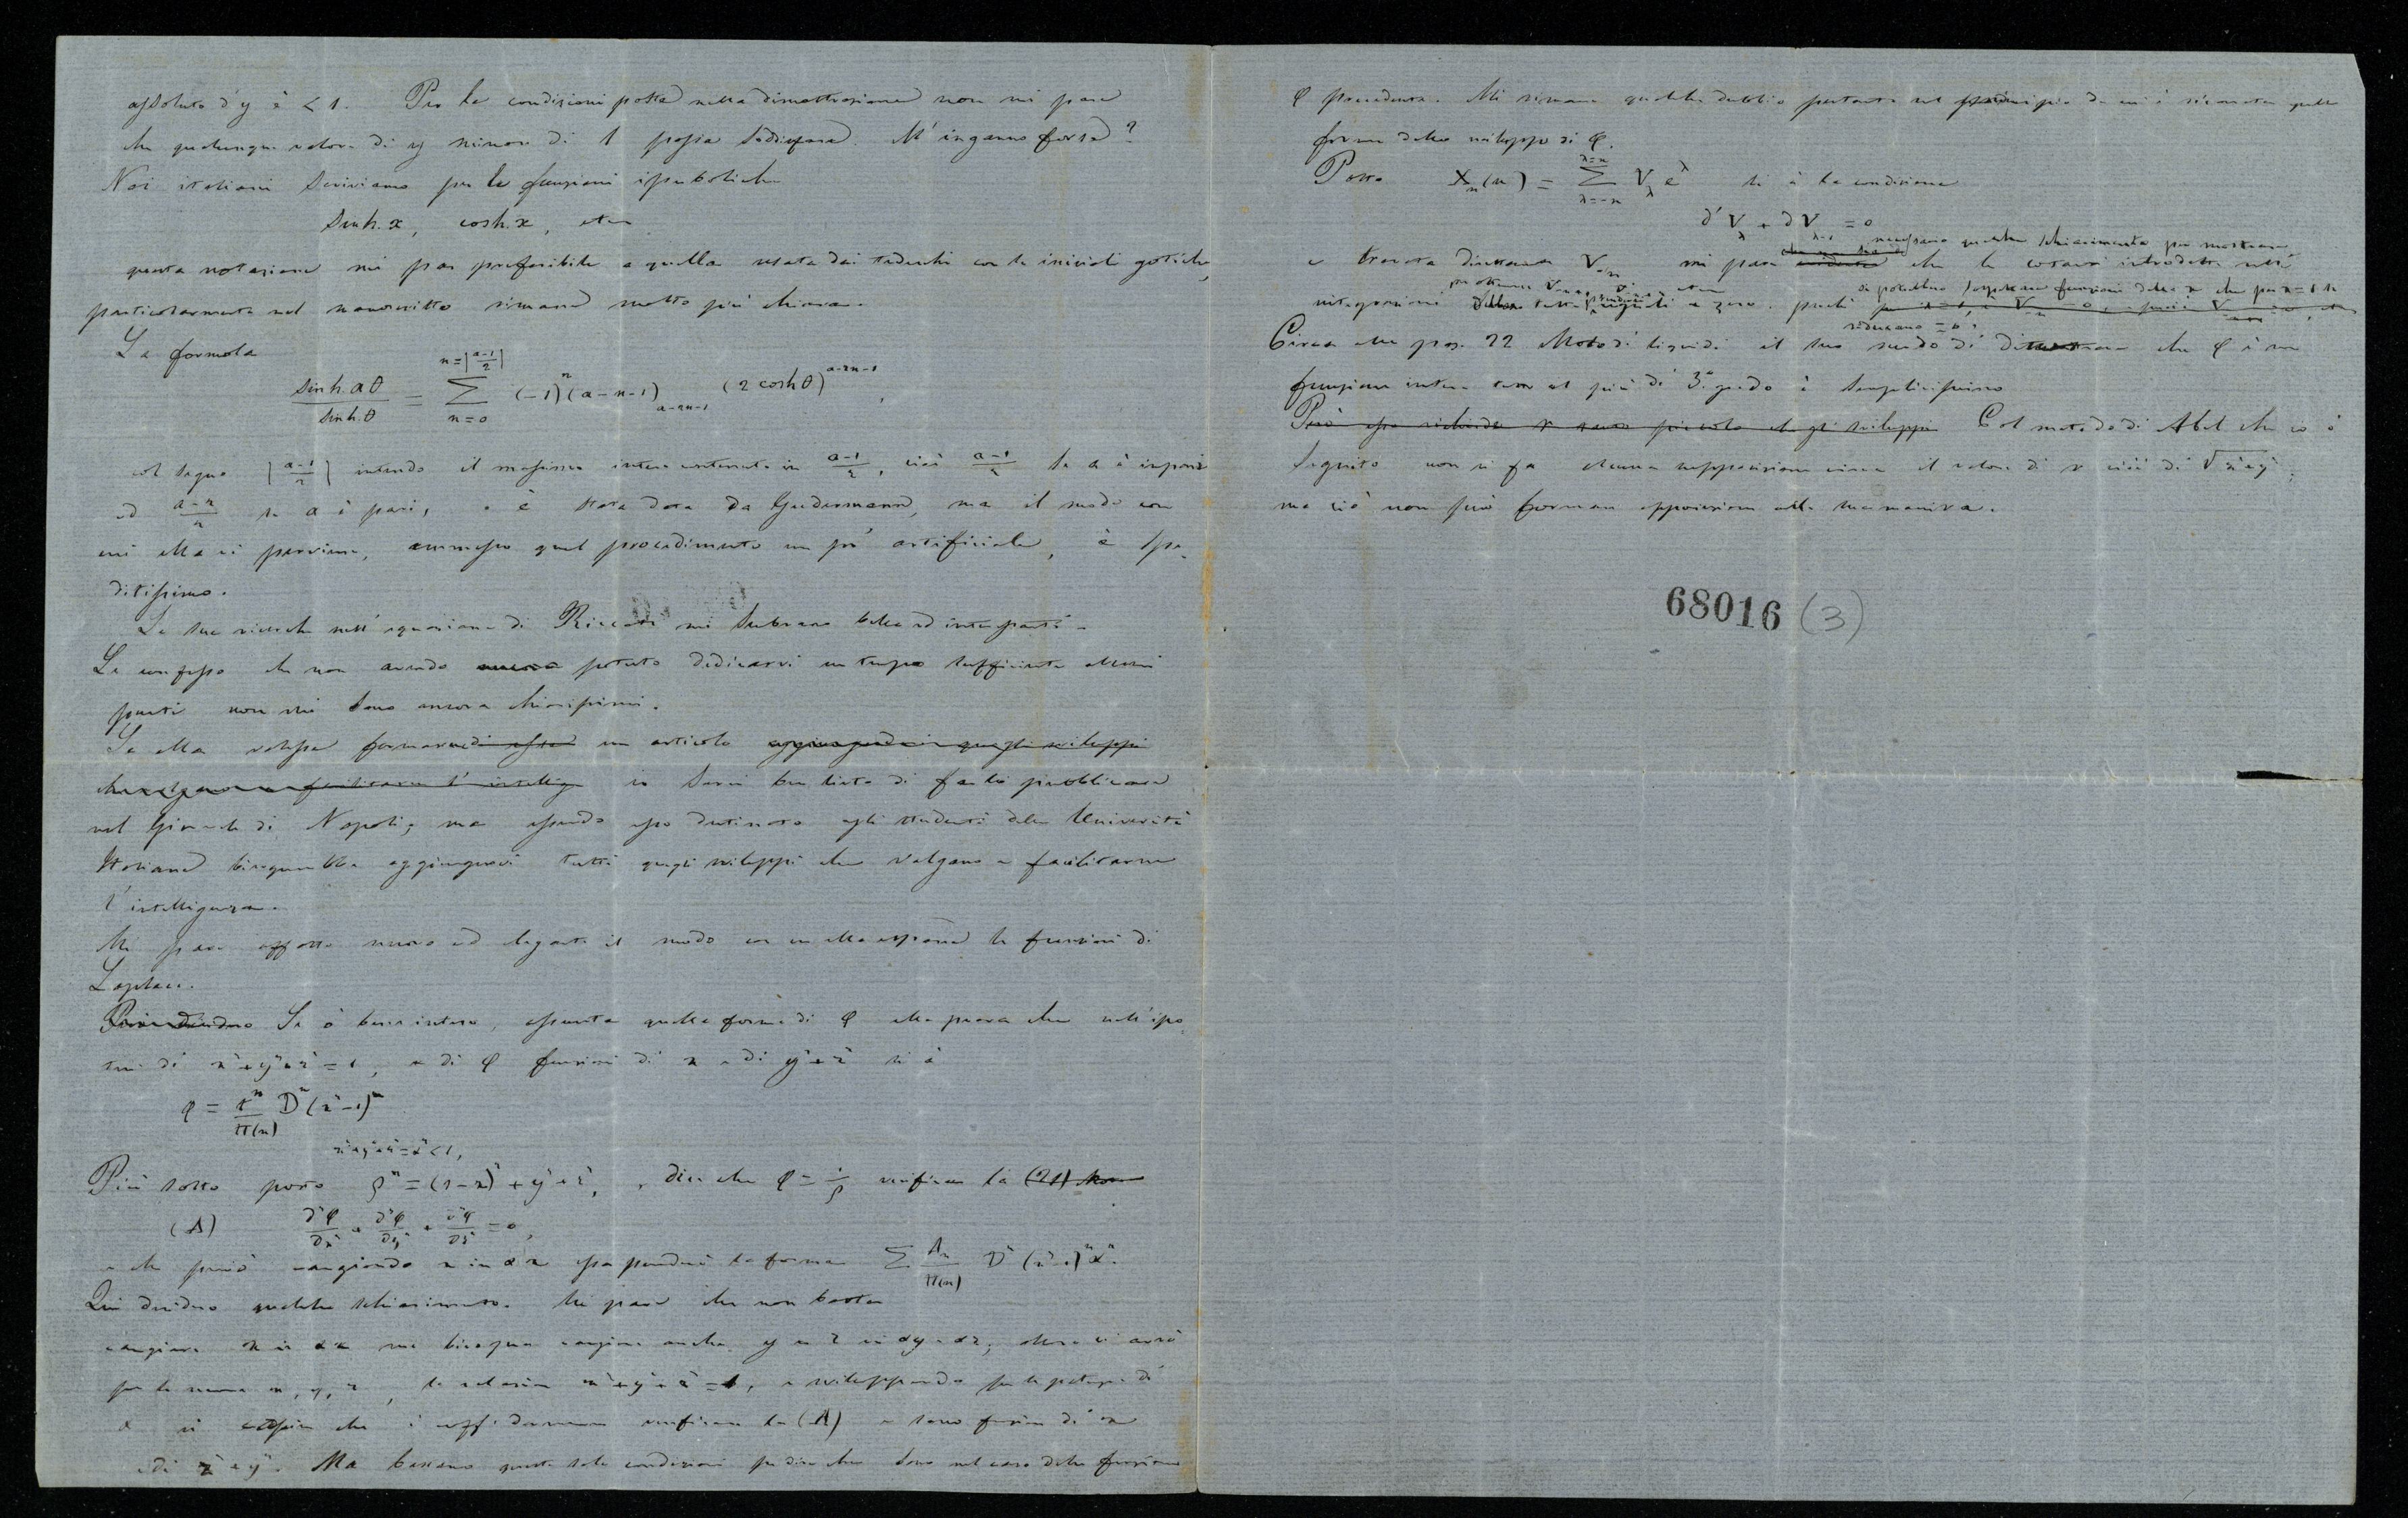 assoluto d'y è < 1. Per le condizioni poste nella dimostrazione non mi pare
che qualunque valore di y minore di 1 possa sodisfare. M'inganno forse?
Noi italiani scriviamo per le funzioni iperboliche
sinh.x, cosh.x, etc
questa notazione mi par preferibile a quella usata dai tedeschi con le iniziali gotiche,
particolarmente nel manoscritto rimane molto più chiara.
La formola
sinh.aθ / sinh.θ = Σ_{n=0}^{n=|(a-1)/2|} (-1)^n (a-n-1)_{a-2n-1} (2 cosh θ)^{a-2n-1},
col segno |(a-1)/2| intendo il massimo intero contenuto in (a-1)/2, cioè (a-1)/2 se a è impari
ed (a-2)/2 se a è pari, è stata data da Gudermann, ma il modo con
cui ella ci perviene, ammesso quel procedimento un po' artificiale, è spe-
ditissimo.
Le sue ricerche sull'equazione di Riccati mi sembrano belle ed interessanti.
Le confesso che non avendo ancora potuto dedicarvi un tempo sufficiente alcuni
punti non mi sono ancora chiarissimi.
Se ella volesse formarne di esse un articolo aggiungendovi quegli sviluppi
che valgano a facilitarne l'intellig io sarei ben lieto di farlo pubblicare
nel Giornale di Napoli; ma essendo esso destinato agli studenti delle Università
Italiane bisognerebbe aggiungervi tutti quegli sviluppi che valgano a facilitarne
l'intelligenza.
Mi pare affatto nuovo ed elegante il modo con cui ella espone le funzioni di
Laplace.
Se ò bene inteso, assunta quella forma di φ ella prova che nell'ipo-
tesi di x²+y²+z²=1, e di φ funzione di x e di y²+z² si à
φ = 1^n / Π(n) D^n (x²-1)^n
x²+y²+z²=α²<1,
Più sotto posto ρ² = (1-x)² + y² + z², e dice che φ = 1/ρ verifica la (21)
(A) ∂²φ/∂x² + ∂²φ/∂y² + ∂²φ/∂z² = 0,
e che perciò cangiando x in αx essa prenderà la forma Σ A_n/Π(n) D^n (x²-1)^n α^n.
Qui desidero qualche schiarimento. Mi pare che non basta
cangiare x in αx ma bisogna cangiare anche y e z in αy e αz; allora si avrà
per le nuove x, y, z, la relazione x²+y²+z²=1, e sviluppando per le potenze di
α si capisce che i coefficienti verificano la (A) e sono funzioni di x
e di z²+y². Ma bastano queste sole condizioni per dire che sono nel caso della funzione
φ precedente. Mi rimane qualche dubbio pertanto sul principio da cui è ricavata quella
forma dello sviluppo di φ.
Posto X_n(u) = Σ_{λ=-n}^{λ=n} V_λ e^λ si à la condizione
∂'V_λ + ∂V_{λ-1} = 0
necessario qualche schiarimento per mostrare
e trovata direttamente V_{-n} mi pare che le costanti introdotte nelle
per ottenere V_{-n+1}, etc. si potrebbero sospettare funzioni della x che per x=1 si
integrazioni siano tutte eguali a zero. perchè
riducano = 0.
Circa alla pag. 22 Moto di liquidi il suo modo di dimostrare che φ è una
funzione intera al più di 3° grado è semplicissimo
Però essa richiede r assai piccolo che gli sviluppi Col metodo di Abel che io ò
seguito non si fa alcuna supposizione circa il valore di r cioè di √x²+y²;
ma ciò non può formare opposizione alla sua maniera.
68016 (3)